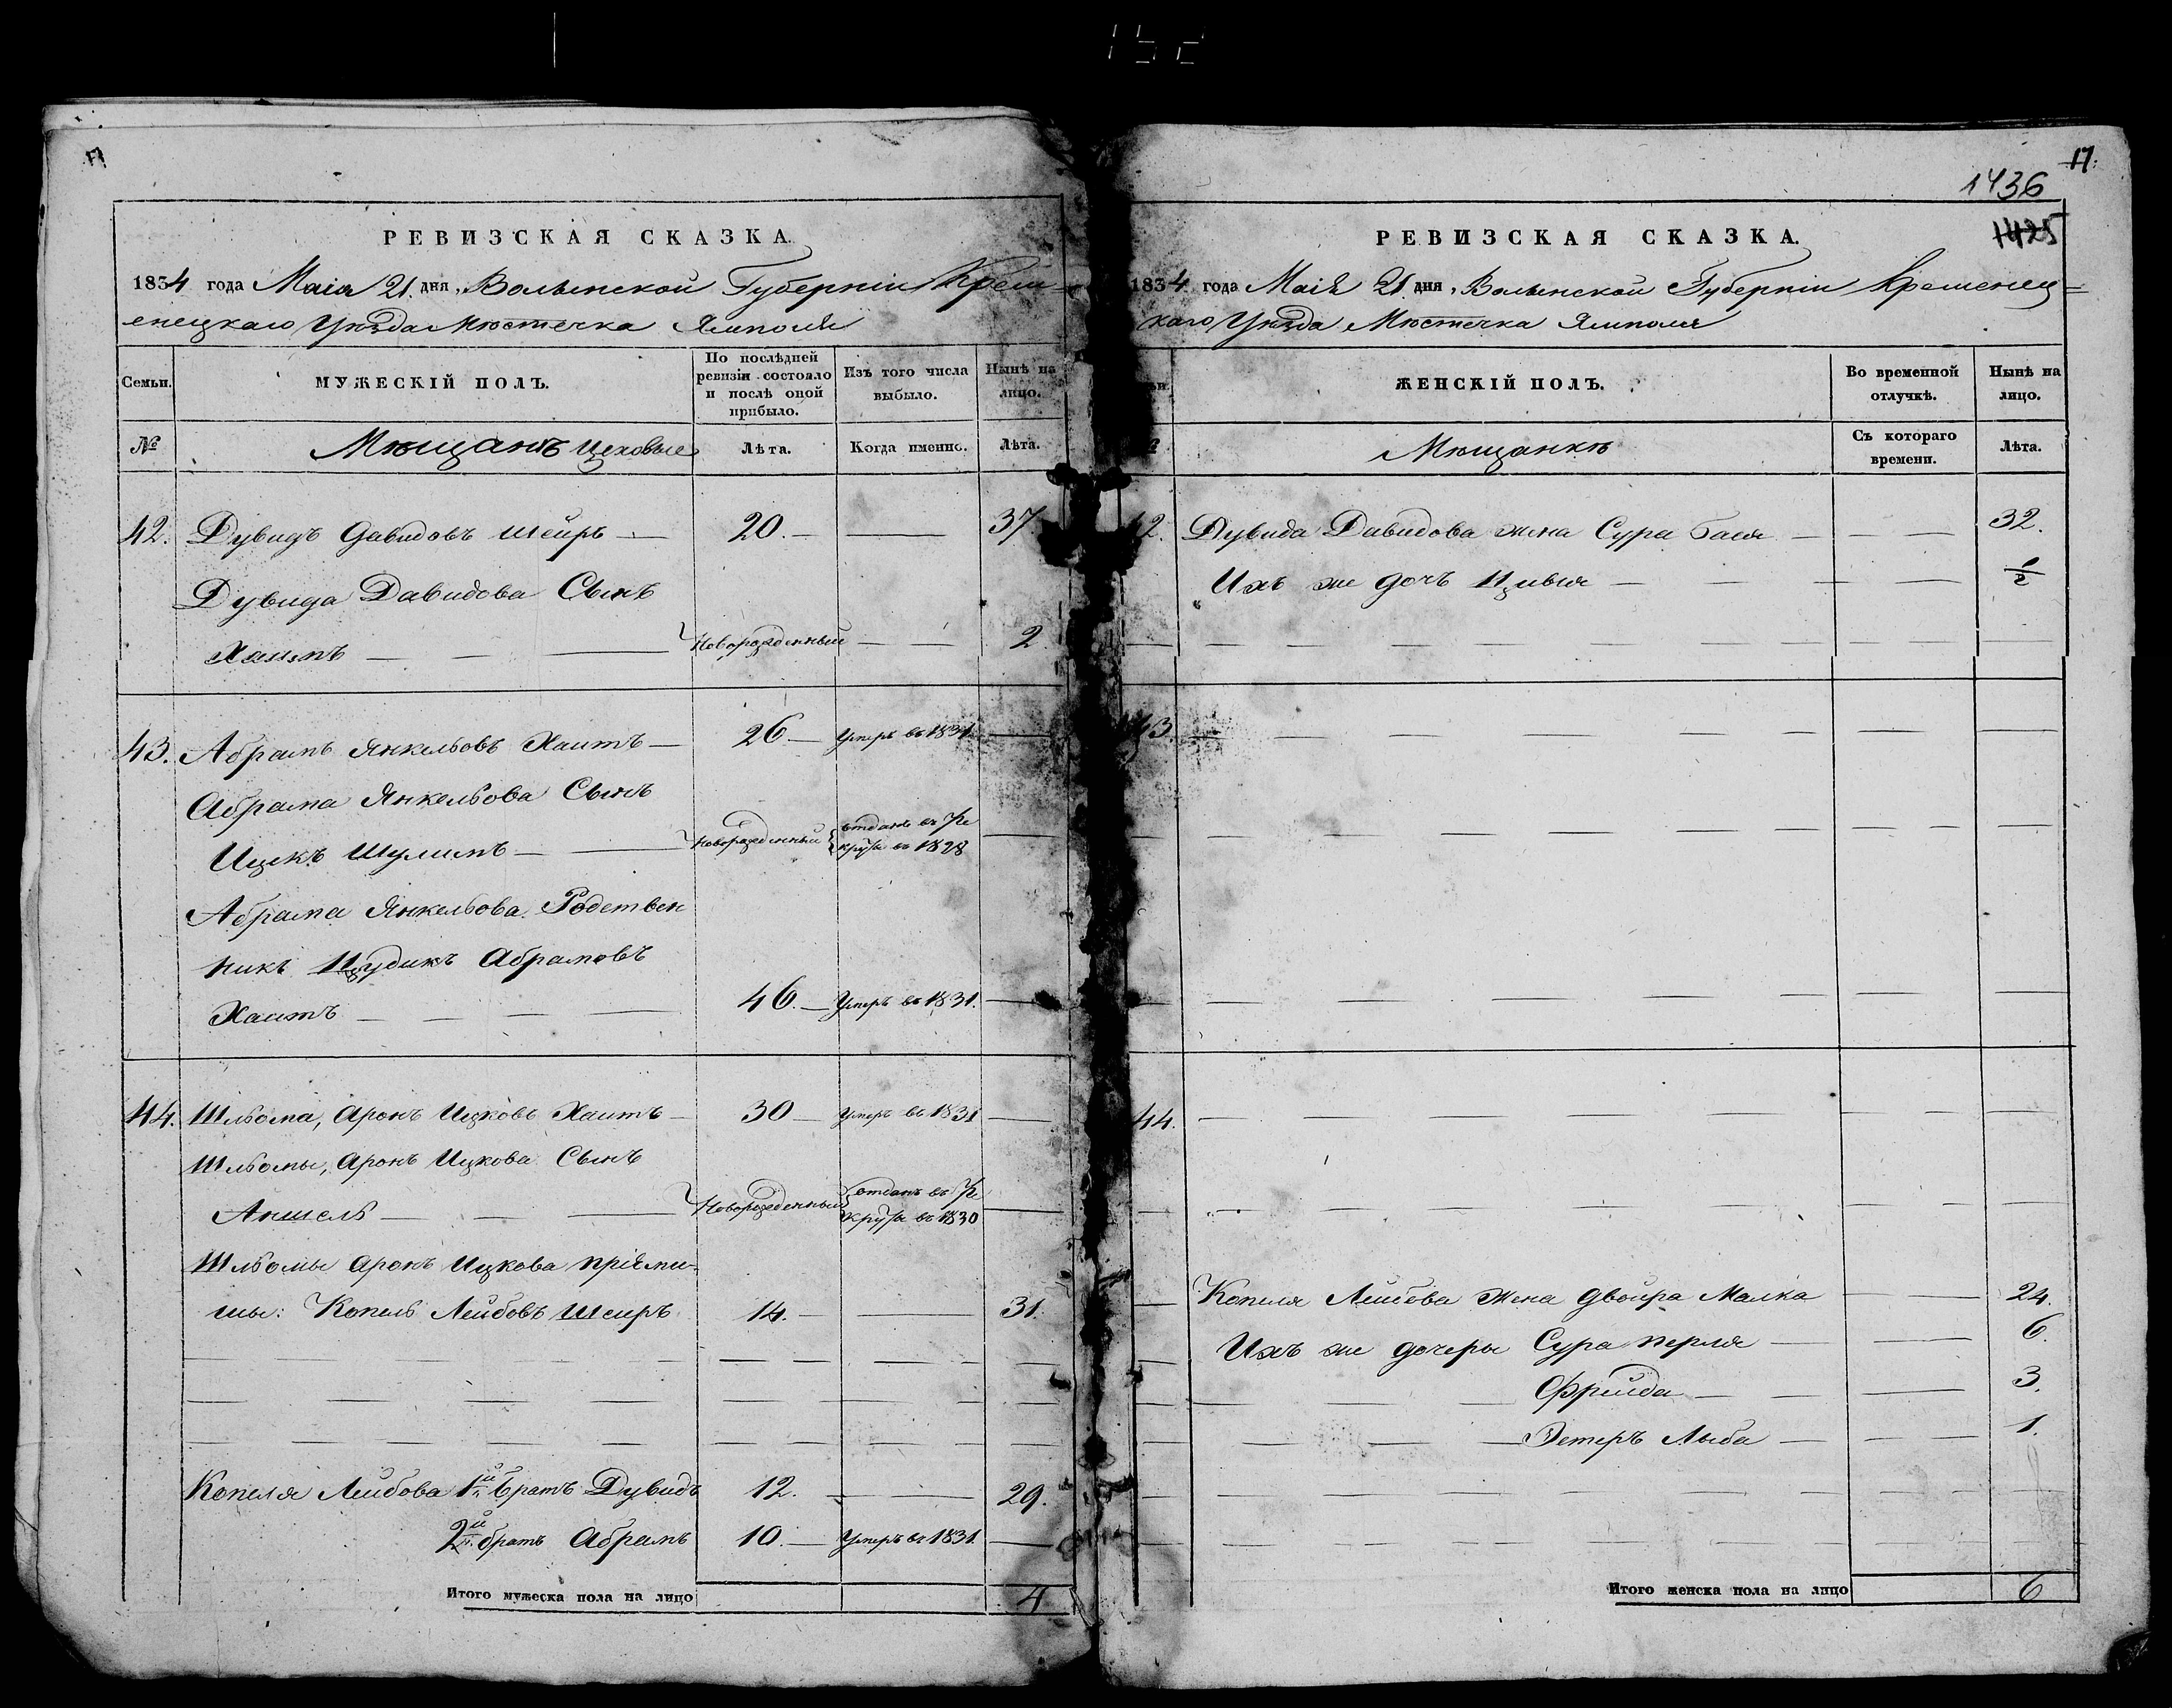 17
РЕВИЗСКАЯ СКАЗКА
1834 года Маія 21 дня, Волынской Губерніи Крем-
енецкаго Уѣзда Мѣстечка Ямполя
Семьи. МУЖЕСКІЙ ПОЛЪ. По послѣдней ревизіи состояло и послѣ оной прибыло. Изъ того числа выбыло. Нынѣ на лицо.
№ Мѣщанъ цеховые Лѣта. Когда именно. Лѣта.
42. Дувидъ Давидовъ Шейръ 20. 37
Дувида Давидова Сынъ
Хаимъ Новорожденный 2
43. Абрамъ Янкельовъ Хаитъ 26 Умеръ въ 1831
Абрама Янкельова Сынъ
Ицекъ Шулимъ Новорожденный отданъ въ Ре
круты въ 1828
Абрама Янкельова Родствен
никъ Цудикъ Абрамовъ
Хаитъ 46. Умеръ въ 1831.
44. Шльома, Аронъ Ицковъ Хаитъ 30 Умеръ въ 1831
Шльомы, Аронъ Ицкова Сынъ
Аншель Новорожденный отданъ въ Ре
круты въ 1830
Шльомы Аронъ Ицкова пріемы-
шы: Копель Лейбовъ Шеиръ 14. 31.
Копеля Лейбова 1й братъ Дувидъ 12. 29.
2й братъ Абрамъ 10. Умеръ въ 1831.
Итого мужеска пола на лицо 4
17.
1436
1425
РЕВИЗСКАЯ СКАЗКА.
1834 года Маія 21 дня, Волынской Губерніи Кременец=
каго Уѣзда Мѣстечка Ямполя
ЖЕНСКІЙ ПОЛЪ. Во временной отлучкѣ. Нынѣ на лицо.
Мѣщанкѣ Съ котораго времени. Лѣта.
42. Дувида Давидова жена Сура Бася 32.
Ихъ же дочъ Цивья 1/2
43.
44.
Копеля Лейбова жена Двойра Малка 24.
Ихъ же дочеры Сура Перля 6.
Фрейда 3.
Эстеръ Лыба 1.
Итого женска пола на лицо 6